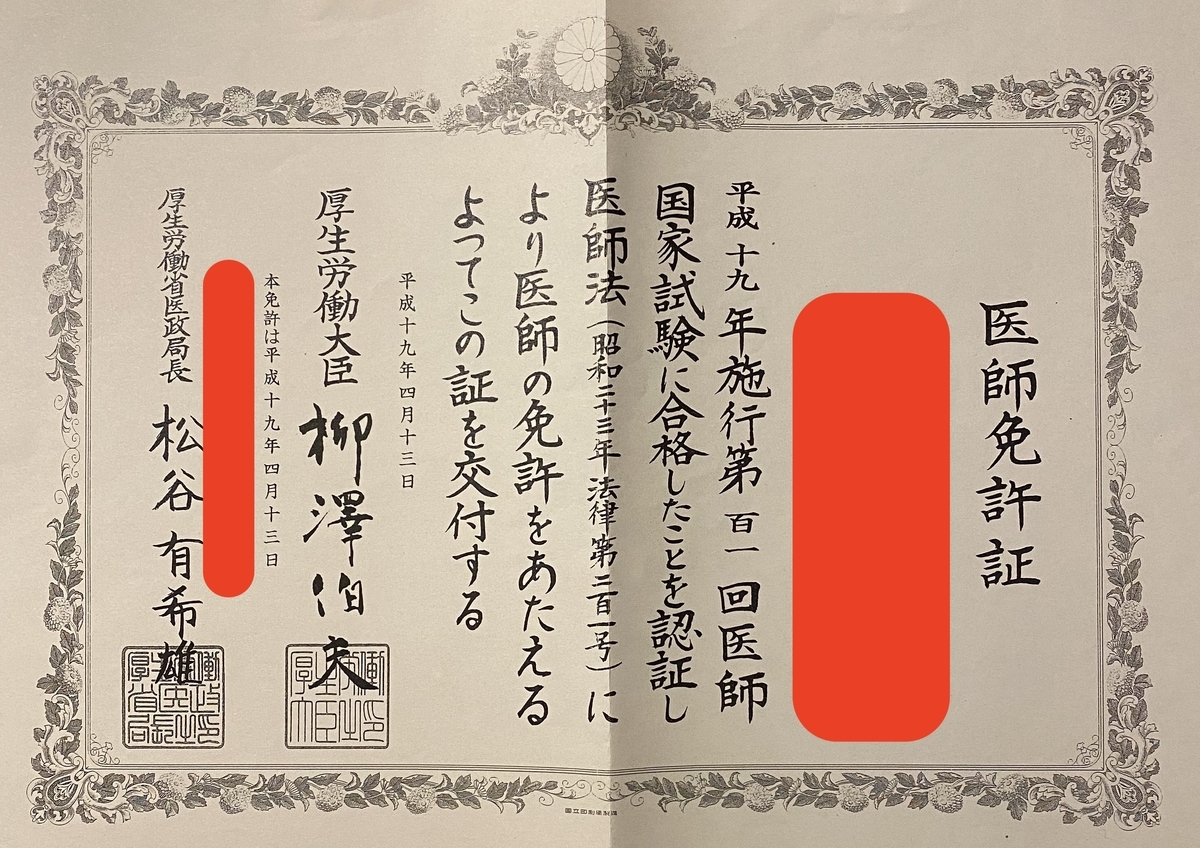 医師免許証
平成十九年施行第百一回医師
国家試験に合格したことを認証し
医師法（昭和二十三年法律第二百一号）に
より医師の免許をあたえる
よつてこの証を交付する
平成十九年四月十三日
厚生労働大臣 柳澤伯夫
本免許は平成十九年四月十三日
厚生労働省医政局長 松谷有希雄